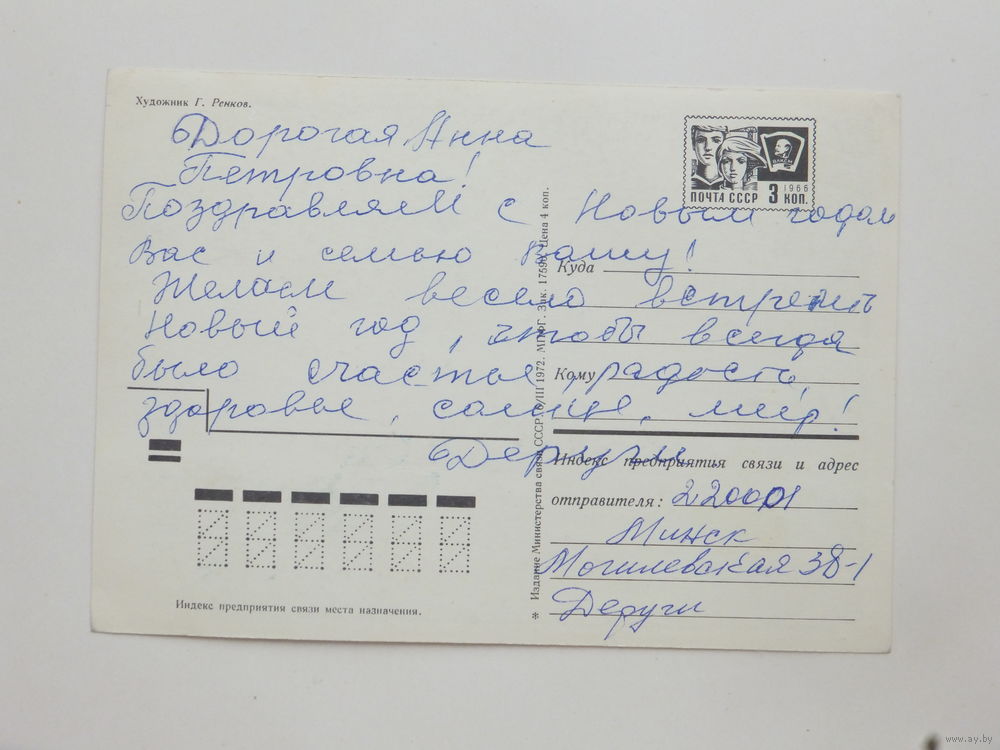 Художник Г. Ренков.
Дорогая Анна
Петровна!
Поздравляем с Новым годом
Вас и семью Вашу!
Желаем весело встретить
Новый год, чтобы всегда
было счастье, радость,
здоровье, солнце, мир!
Деруги
ВЛКСМ
1966
ПОЧТА СССР 3 КОП.
Куда
Кому
Индекс предприятия связи и адрес
отправителя: 220001
Минск
Могилевская 38-1
Деруги
Издание Министерства связи СССР. 6/III 1972. МПФГ. Зак. Цена 4 коп.
Индекс предприятия связи места назначения.
www.ay.by